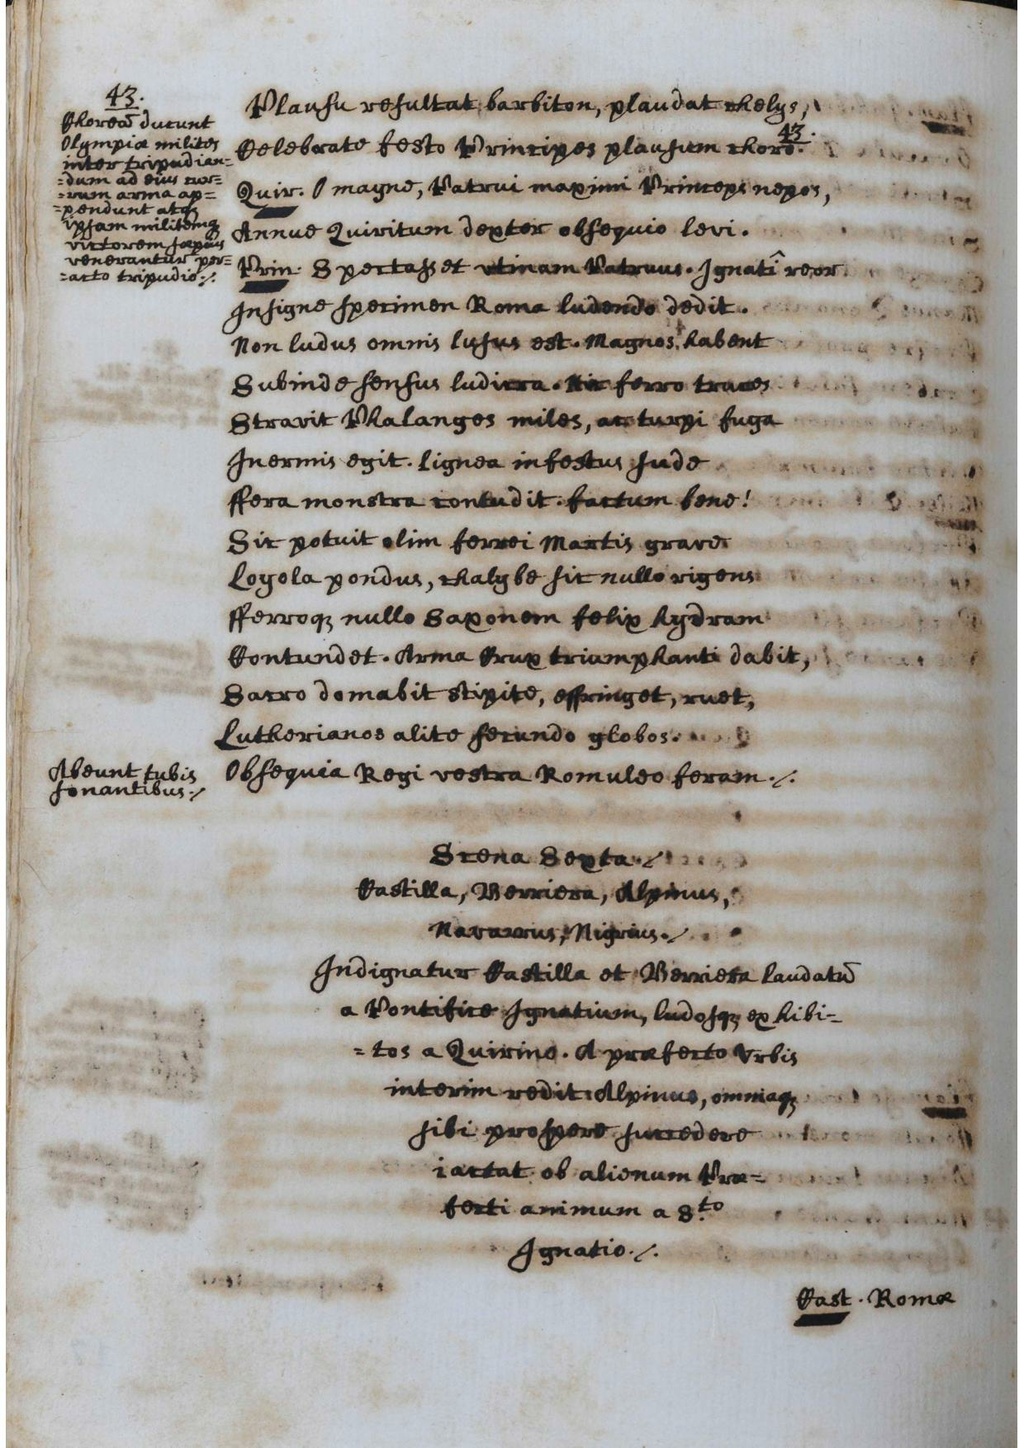 43.
Choreā ducunt
Olympiæ milites
inter tripudian=
=dum ad eius cur=
=rum arma ap=
=pendunt atq̨
ipsam militemq̨
victorem sæpius
venerantur per=
=acto tripudio./.
Plausu resultat barbiton, plaudat chelys,
43.
Celebrate festo Principes plausum choro.
Quir. O magne, Patrui maximi Princeps nepos,
Annue Quiritum dexter obsequio levi.
Prin. Spectasset utinam Patruus. Ignatî reor
Insigne specimen Roma ludendo dedit.
Non ludus omnis lusus est. Magnos habent
Subinde sensus ludicra. Hic ferro traces
Stravit Phalanges miles, ac turpi fuga
Inermis egit. lignea infestus sude
ffera monstra contudit. factum bene!
Sic potuit olim ferrei Martis grave
Loyola pondus, chalybe sic nullo rigens
fferroq̨ nullo Saxonem felix hydram
Contundet. Arma Crux triumphanti dabit,
Sacro domabit stipite, effringet, ruet,
Lutherianos alite secundo globos.
Abeunt tubis
sonantibus./
Obsequia Regi vestra Romuleo feram./.
Scena Sexta./
Castilla, Verriera, Alpinus,
Navarrus, Nigrius./
Indignatur Castilla et Verriera laudatū
a Pontifice Ignatium, ludosq̨ exhibi=
=tos a Quirino. A præfecto Vrbis
interim redit Alpinus, omniaq̨
sibi prospere succedere
iactat ob alienum Præ=
fecti animum a S.to
Ignatio./.
Cast. Romæ